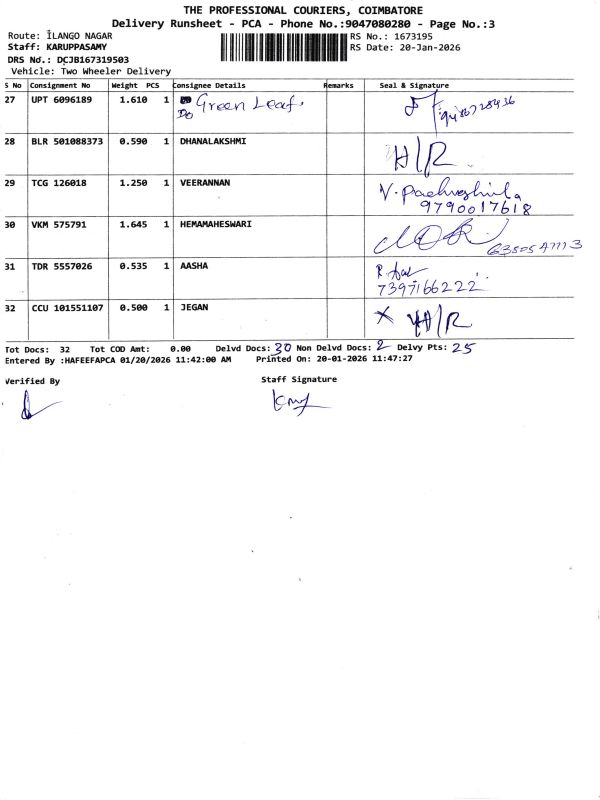 THE PROFESSIONAL COURIERS, COIMBATORE
Delivery Runsheet - PCA - Phone No.:9047080280 - Page No.:3
Route: ILANGO NAGAR
RS No.: 1673195
Staff: KARUPPASAMY
RS Date: 20-Jan-2026
DRS No.: DCJB167319503
Vehicle: Two Wheeler Delivery
S No Consignment No Weight PCS Consignee Details Remarks Seal & Signature
27 UPT 6096189 1.610 1 Do Green Leaf.
28 BLR 501088373 0.590 1 DHANALAKSHMI H/R
29 TCG 126018 1.250 1 VEERANNAN
9790017618
30 VKM 575791 1.645 1 HEMAMAHESWARI
31 TDR 5557026 0.535 1 AASHA
7397166222
32 CCU 101551107 0.500 1 JEGAN H/R
Tot Docs: 32 Tot COD Amt: 0.00 Delvd Docs: 30 Non Delvd Docs: 2 Delvy Pts: 25
Entered By :HAFEEFAPCA 01/20/2026 11:42:00 AM Printed On: 20-01-2026 11:47:27
Verified By Staff Signature